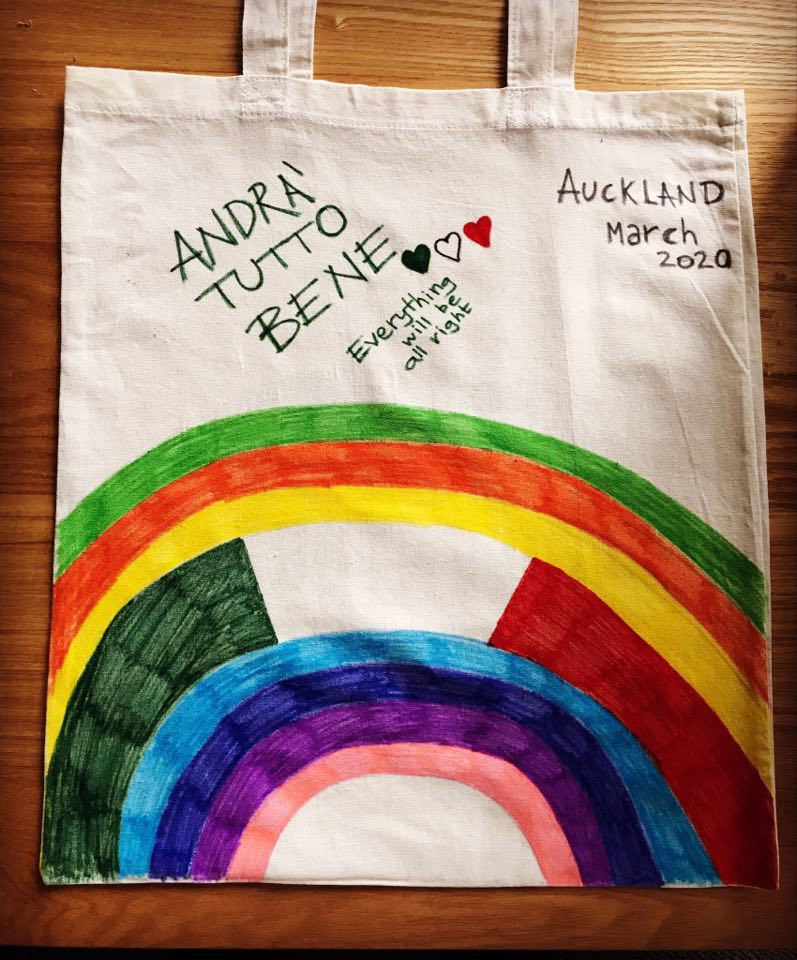 ANDRA'
TUTTO
BENE
Everything
will be
all right
AUCKLAND
March
2020